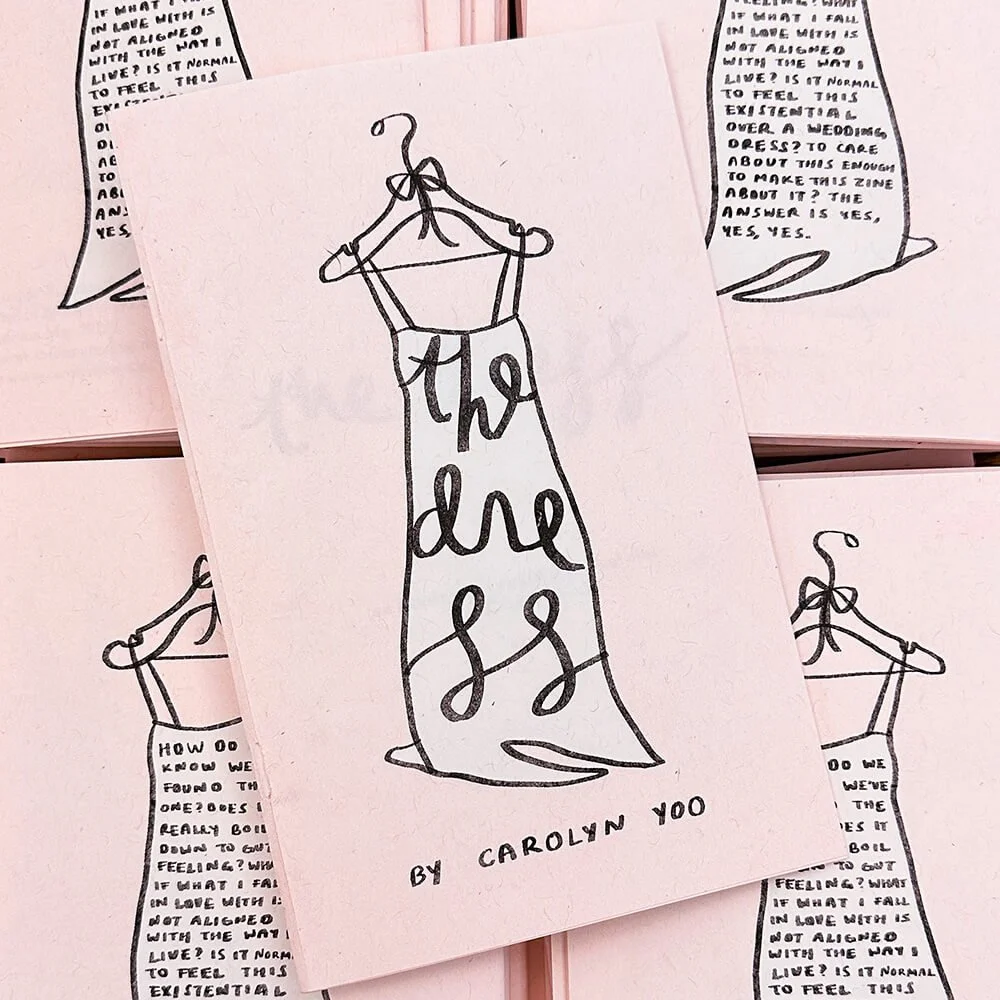 IF WHAT I
IN LOVE WITH IS
NOT ALIGNED
WITH THE WAY I
LIVE? IS IT NORMAL
TO FEEL THIS
TO
YES,
FEELING? WHAT
IF WHAT I FALL
IN LOVE WITH IS
NOT ALIGNED
WITH THE WAY I
LIVE? IS IT NORMAL
TO FEEL THIS
EXISTENTIAL
OVER A WEDDING
DRESS? TO CARE
ABOUT THIS ENOUGH
TO MAKE THIS ZINE
ABOUT IT? THE
ANSWER IS YES,
YES, YES.
the
dre
ss
BY CAROLYN YOO
HOW DO
KNOW WE
FOUND TH
ONE? DOES I
REALLY BOIL
DOWN TO GUT
FEELING? WHA
IF WHAT I FAL
IN LOVE WITH I
NOT ALIGNED
WITH THE WAY I
LIVE? IS IT NORM
TO FEEL THIS
EXISTENTIAL
DO WE
WE'VE
THE
ES IT
BOIL
TO GUT
FEELING? WHAT
IF WHAT I FALL
IN LOVE WITH IS
NOT ALIGNED
WITH THE WAY I
LIVE? IS IT NORMAL
TO FEEL THIS